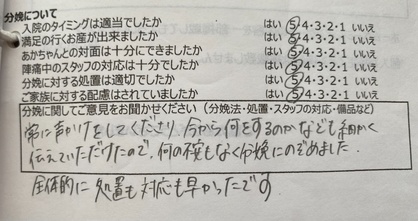 分娩について
入院のタイミングは適当でしたか はい ⑤・4・3・2・1 いいえ
満足の行くお産が出来ましたか はい ⑤・4・3・2・1 いいえ
あかちゃんとの対面は十分にできましたか はい ⑤・4・3・2・1 いいえ
陣痛中のスタッフの対応は十分でしたか はい ⑤・4・3・2・1 いいえ
分娩に対する処置は適切でしたか はい ⑤・4・3・2・1 いいえ
ご家族に対する配慮はされていましたか はい ⑤・4・3・2・1 いいえ
分娩に関してご意見をお聞かせください（分娩法・処置・スタッフの対応・備品など）
常に声かけをしてくださり、今から何をするのかなども細かく
伝えていただけたので、何の不安もなく分娩にのぞめました。
全体的に処置も対応も早かったです